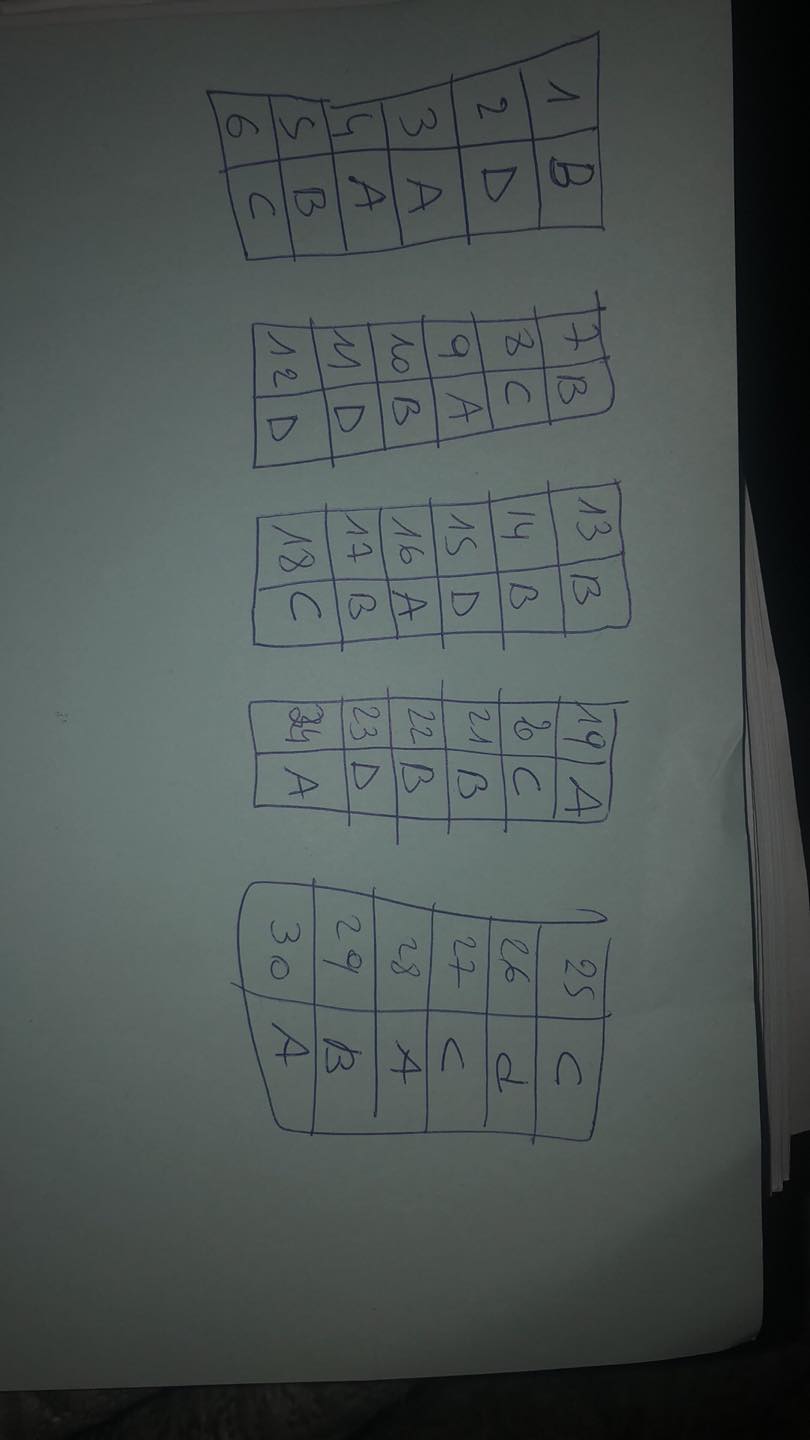 1 B
2 D
3 A
4 A
5 B
6 C
7 B
8 C
9 A
10 B
11 D
12 D
13 B
14 B
15 D
16 A
17 B
18 C
19 A
20 C
21 B
22 B
23 D
24 A
25 C
26 d
27 C
28 A
29 B
30 A